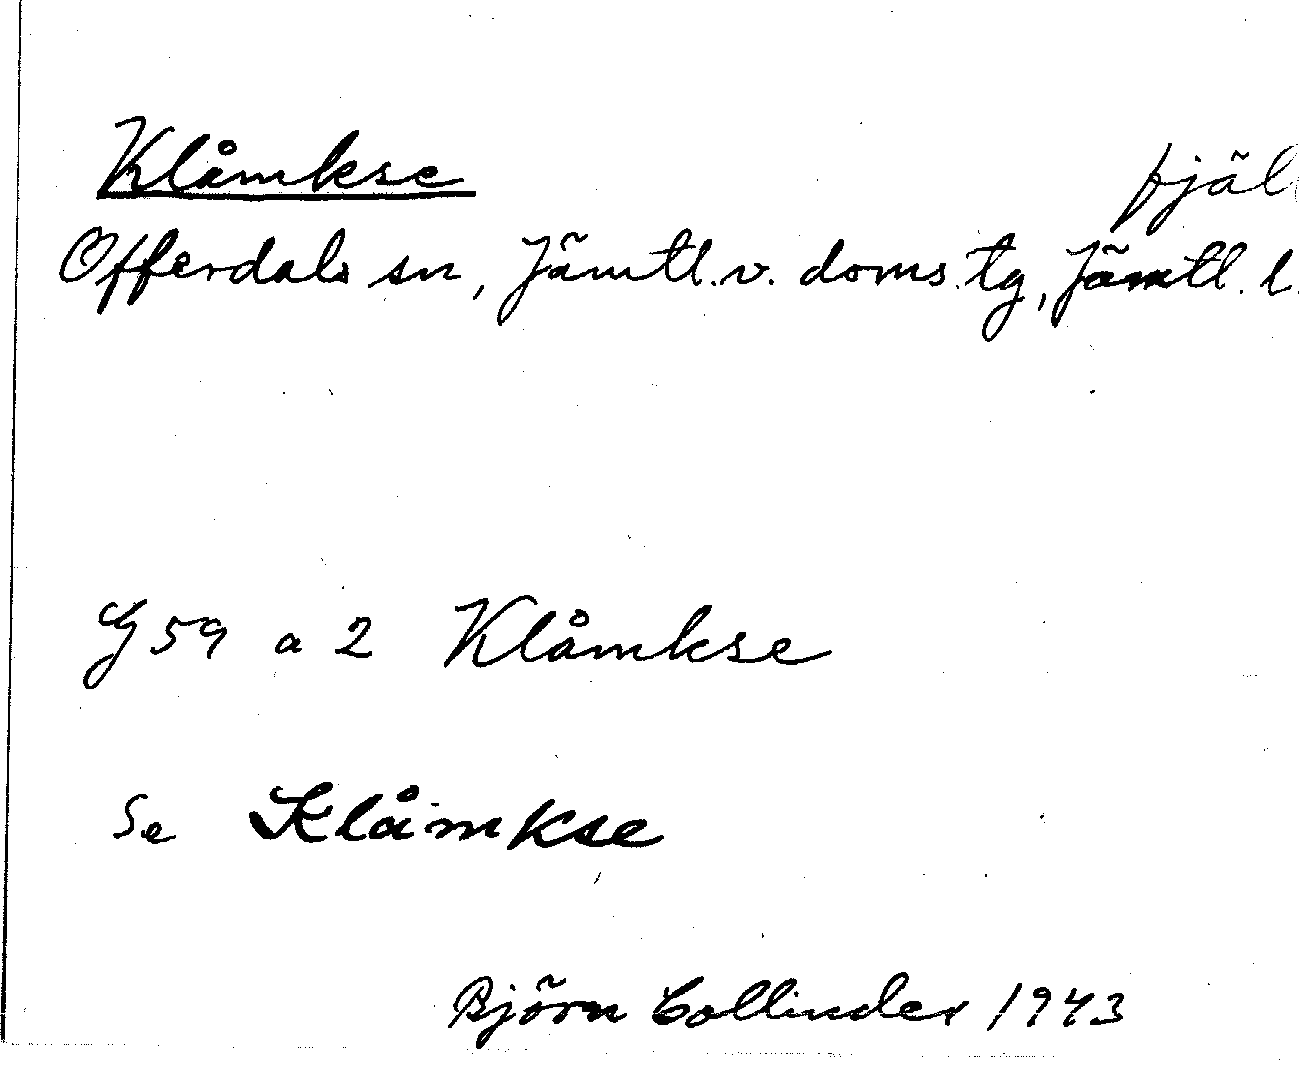 Klåmkse fjäl
Offerdals sn, Jämtl.v. doms.tg, Jämtl. l.
G 59 a 2 Klåmkse
Se Klåmkse
Björn Collinder 1943